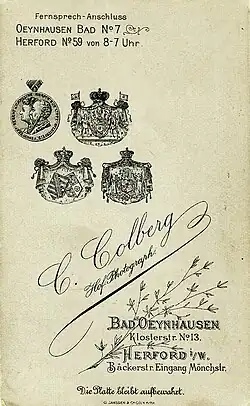 Fernsprech-Anschluss
OEYNHAUSEN BAD No 7.
HERFORD No 59 von 8-7 Uhr.
C. Colberg
Hof-Photograph.
BAD OEYNHAUSEN
Klosterstr. No 13.
HERFORD i/W.
Bäckerstr. Eingang Mönchstr.
Die Platte bleibt aufbewahrt.